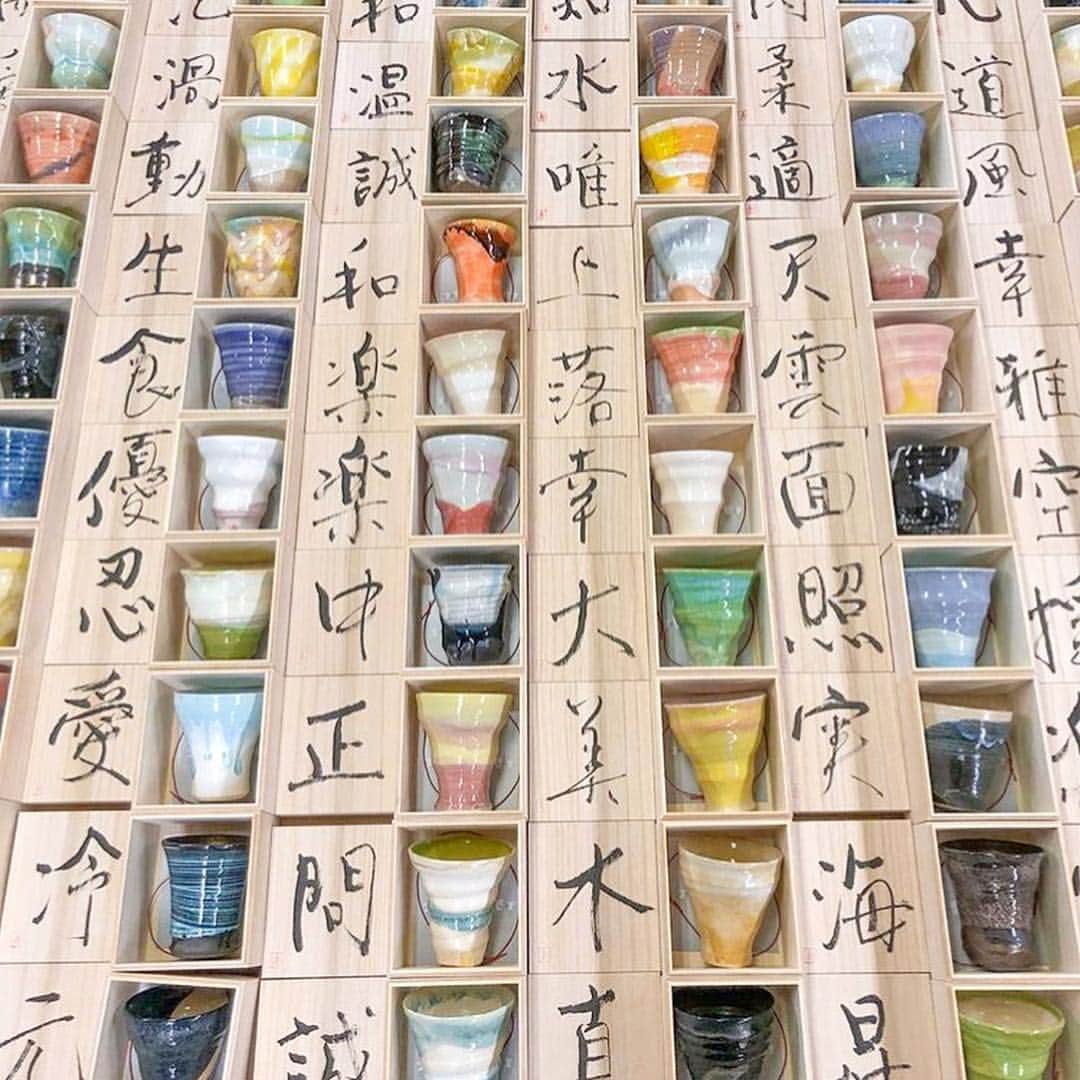 和 知
渦 温 水 柔 道
動 誠 唯 適 風
生 和 上 天 幸
食 楽 落 雲 雅
優 楽 幸 面 空
忍 中 大 照
愛 正 美 実
冷 間 木 海
元 誠 直